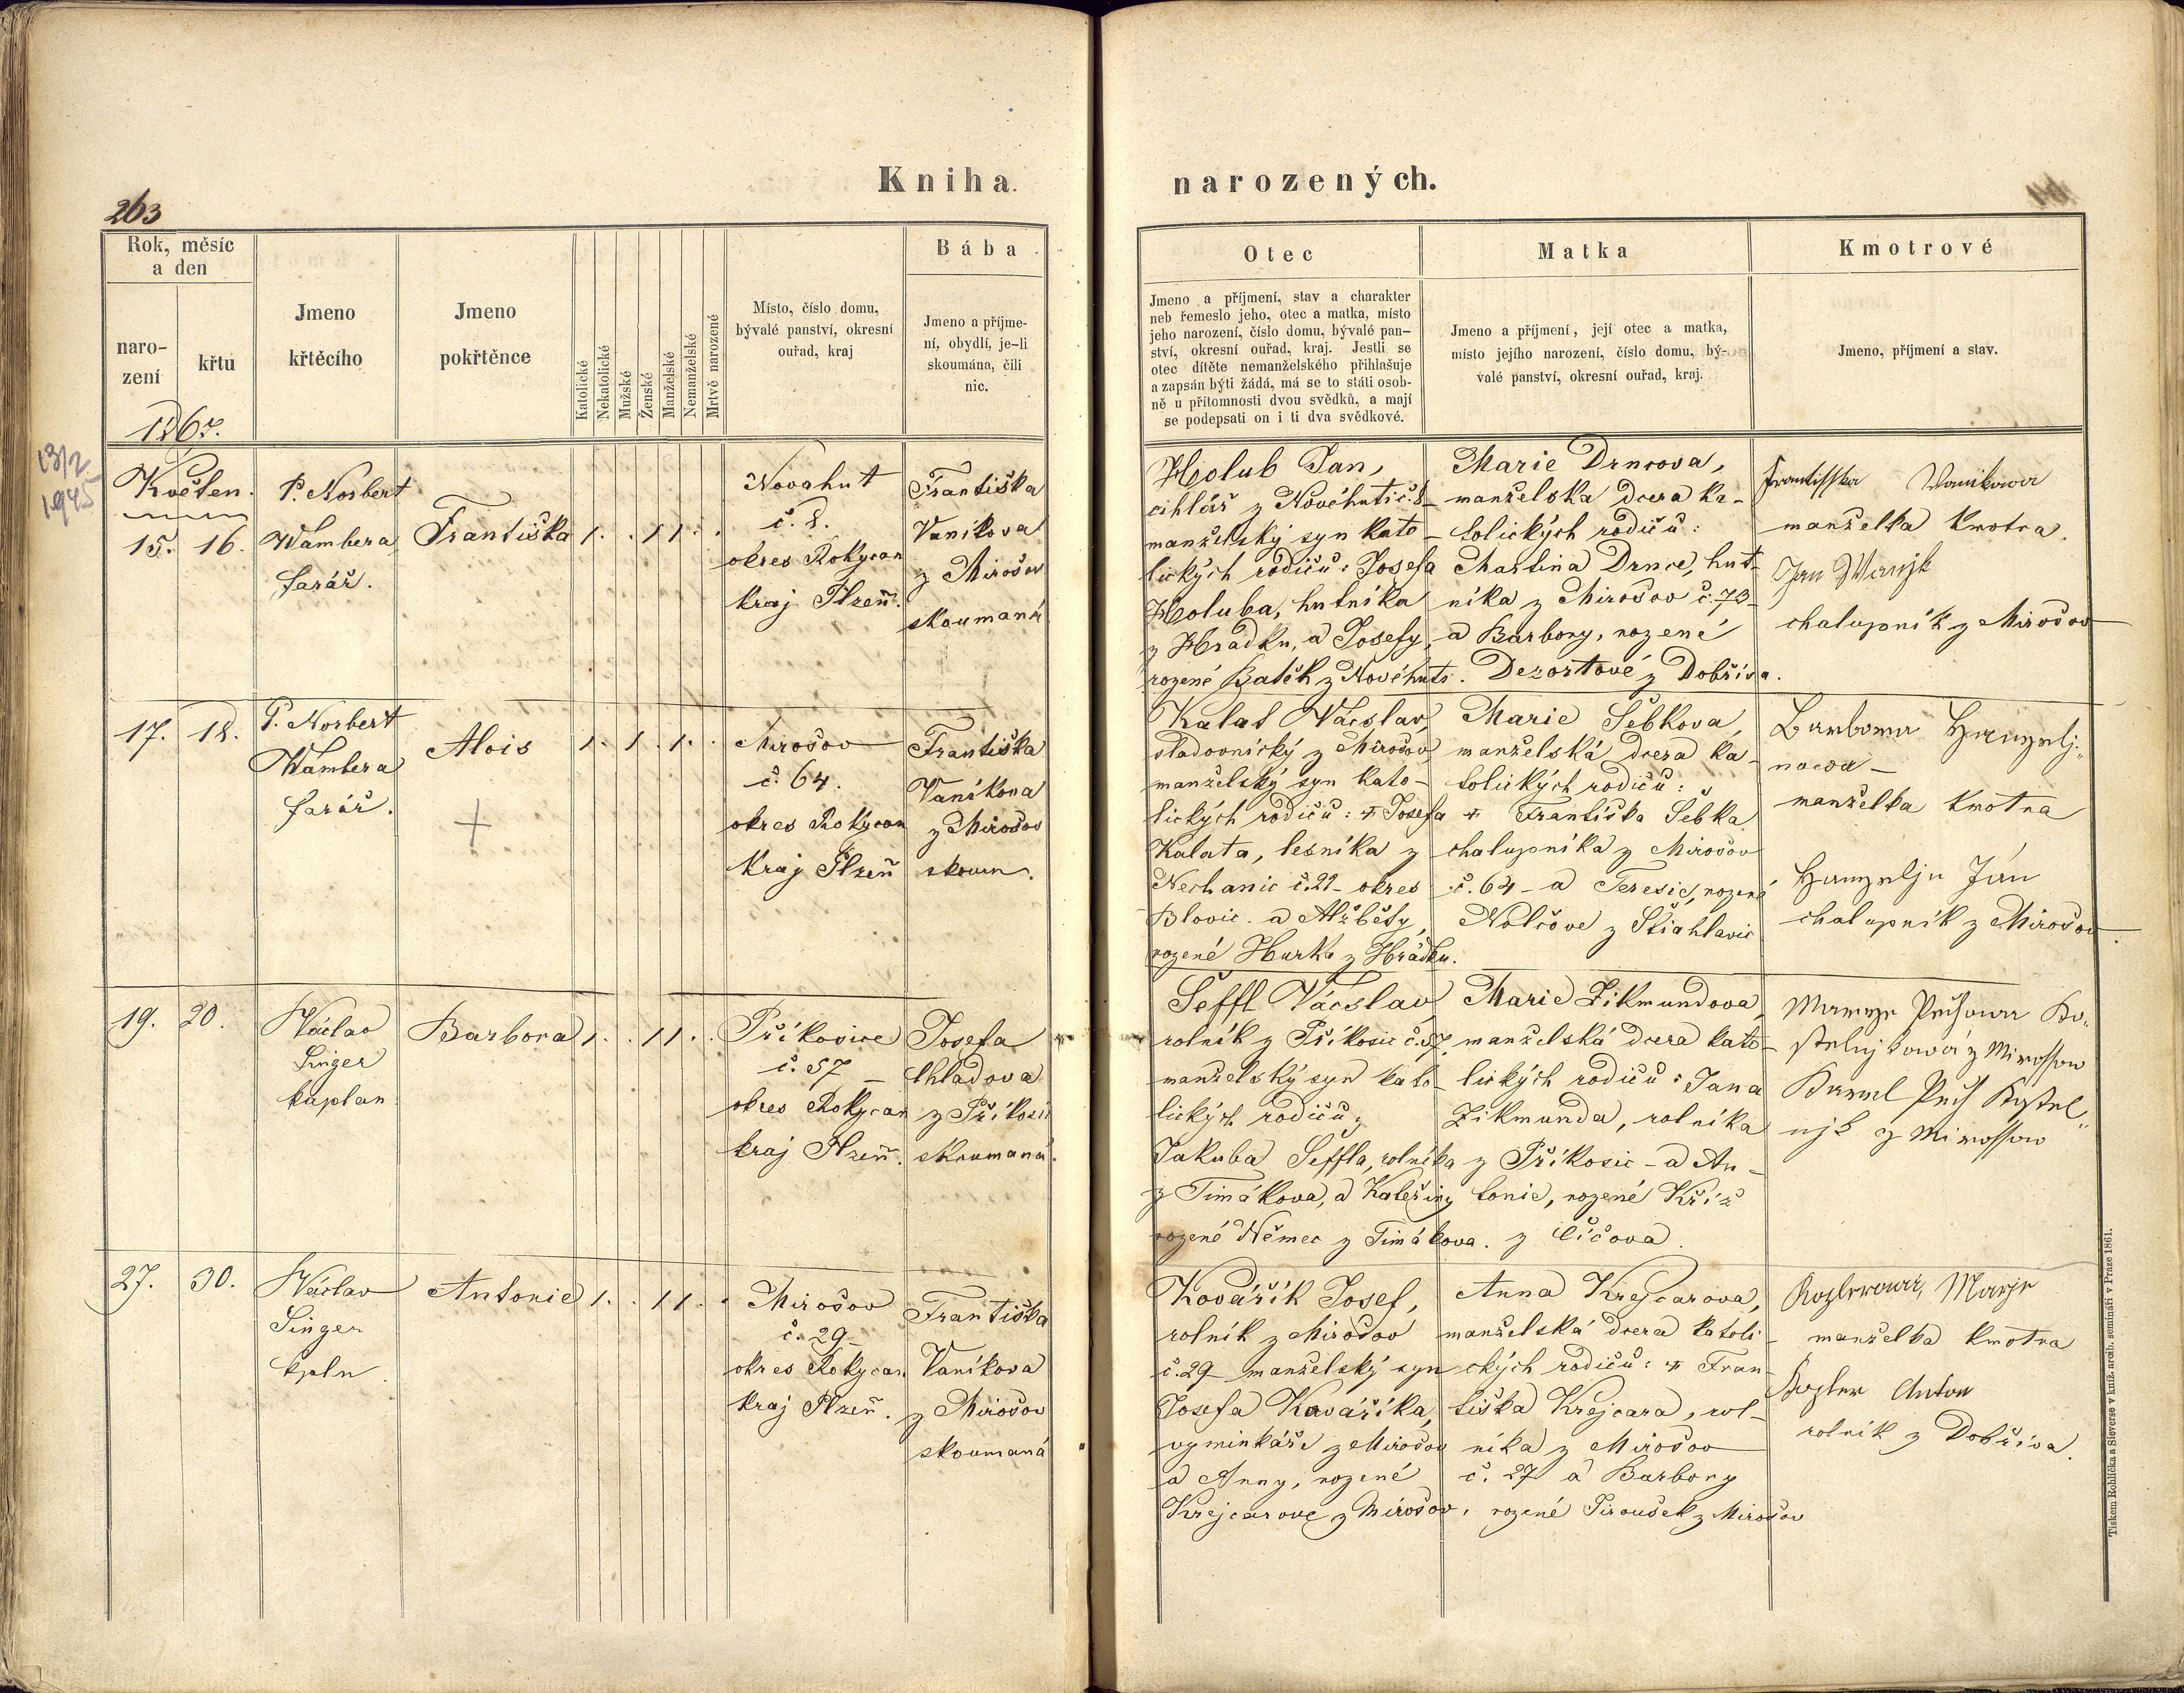 Kniha narozených.
263
Rok, měsíc
a den
naro-
zení
křtu
Jmeno
křtěcího
Jmeno
pokřtěnce
Katolické
Nekatolické
Mužské
Ženské
Manželské
Nemanželské
Mrtvě narozené
Místo, číslo domu,
bývalé panství, okresní
ouřad, kraj
Bába
Jmeno a příjme-
ní, obydlí, je-li
skoumána, čili
nic.
Otec
Jmeno a příjmení, stav a charakter
neb řemeslo jeho, otec a matka, místo
jeho narození, číslo domu, bývalé pan-
ství, okresní ouřad, kraj. Jestli se
otec dítěte nemanželského přihlašuje
a zapsán býti žádá, má se to státi osob-
ně u přítomnosti dvou svědků, a mají
se podepsati on i ti dva svědkové.
Matka
Jmeno a příjmení, její otec a matka,
místo jejího narození, číslo domu, bý-
valé panství, okresní ouřad, kraj.
Kmotrové
Jmeno, příjmení a stav.
1867.
13/2
1945
Květen.
15. 16.
P. Norbert
Wambera
farář.
Františka
1. . 1 1 . .
Novahut
č. 8.
okres Rokycan
kraj Plzeň.
Františka
Vaníkova
z Mirošov
skoumaná
Holub Jan,
cihlář z Novéhuti č. 8
manželský syn kato-
lických rodičů: Josefa
Holuba, hutníka
z Hrádku, a Josefy,
rozené Batěk z Novéhuti.
Marie Drncova,
manželska dcera ka-
tolických rodičů:
Martina Drnce, hut-
níka z Mirošov č. 73
a Barbory, rozené
Dezortové z Dobříva.
Frantisska Wanikowa
manželka kmotra.
Jan Wanjk
chalupník z Mirošov
17. 18.
P. Norbert
Wambera
farář.
Alois
1. 1. 1. .
Mirošov
č. 64.
okres Rokycan
Kraj Plzeň
Františka
Vaníkova
z Mirošov
skoum.
Kalat Václav,
sladovnický z Mirošov
manželský syn kato-
lických rodičů: † Josefa
Kalata, lesníka z
Nechanic č. 21 okres
Blovic. a Alžběty,
rozené Hurka z Hrádku.
Marie Šebkova,
manželská dcera ka-
tolických rodičů:
† Františka Šebka
chalupníka z Mirošov
č. 64 - a Teresie, rozené
z Štiahlavic
nowa -
manželka kmotra
Jan
chalupník z Mirošov.
19. 20.
Václav
Singer
kaplan
Barbora
1. . 1 1 . .
Příkosice
č. 57 -
okres Rokycan
kraj Plzeň.
Josefa
Chladova
z Příkosic
skoumaná.
Šeffl Václav
rolník z Příkosic č. 57,
manželský syn kato-
lických rodičů;
Jakuba Šeffla, rolníka
z Timákova, a Kateřiny
rozené Němec z Timákova.
Marie Zikmundova,
manželská dcera kato-
lických rodičů: Jana
Zikmunda, rolníka
z Příkosic - a An-
tonie, rozené Kříž
z Číčova.
z Mirossow
Karel
njk z Mirossow
27. 30.
Václav
Singer
kpln.
Antonie
1. . 1 1 . .
Mirošov
č. 29
okres Rokycan
kraj Plzeň.
Františka
Vaníkova
z Mirošov
skoumaná
Kovářík Josef,
rolník z Mirošov
č. 29 manželský syn
Josefa Kováříka,
vyminkáře z Mirošov
a Anny, rozené
Krejcarove z Mirošov.
Anna Krejcarova,
manželská dcera katoli-
ckých rodičů: † Fran-
tiška Krejcara, rol-
níka z Mirošov
č. 27 a Barbory
rozené Jiroušek z Mirošov
Marje
manželka kmotra
Anton
rolník z Dobříva.
Tiskem Rohlíčka a Sieverse v kníž. arcib. semináři v Praze 1861.